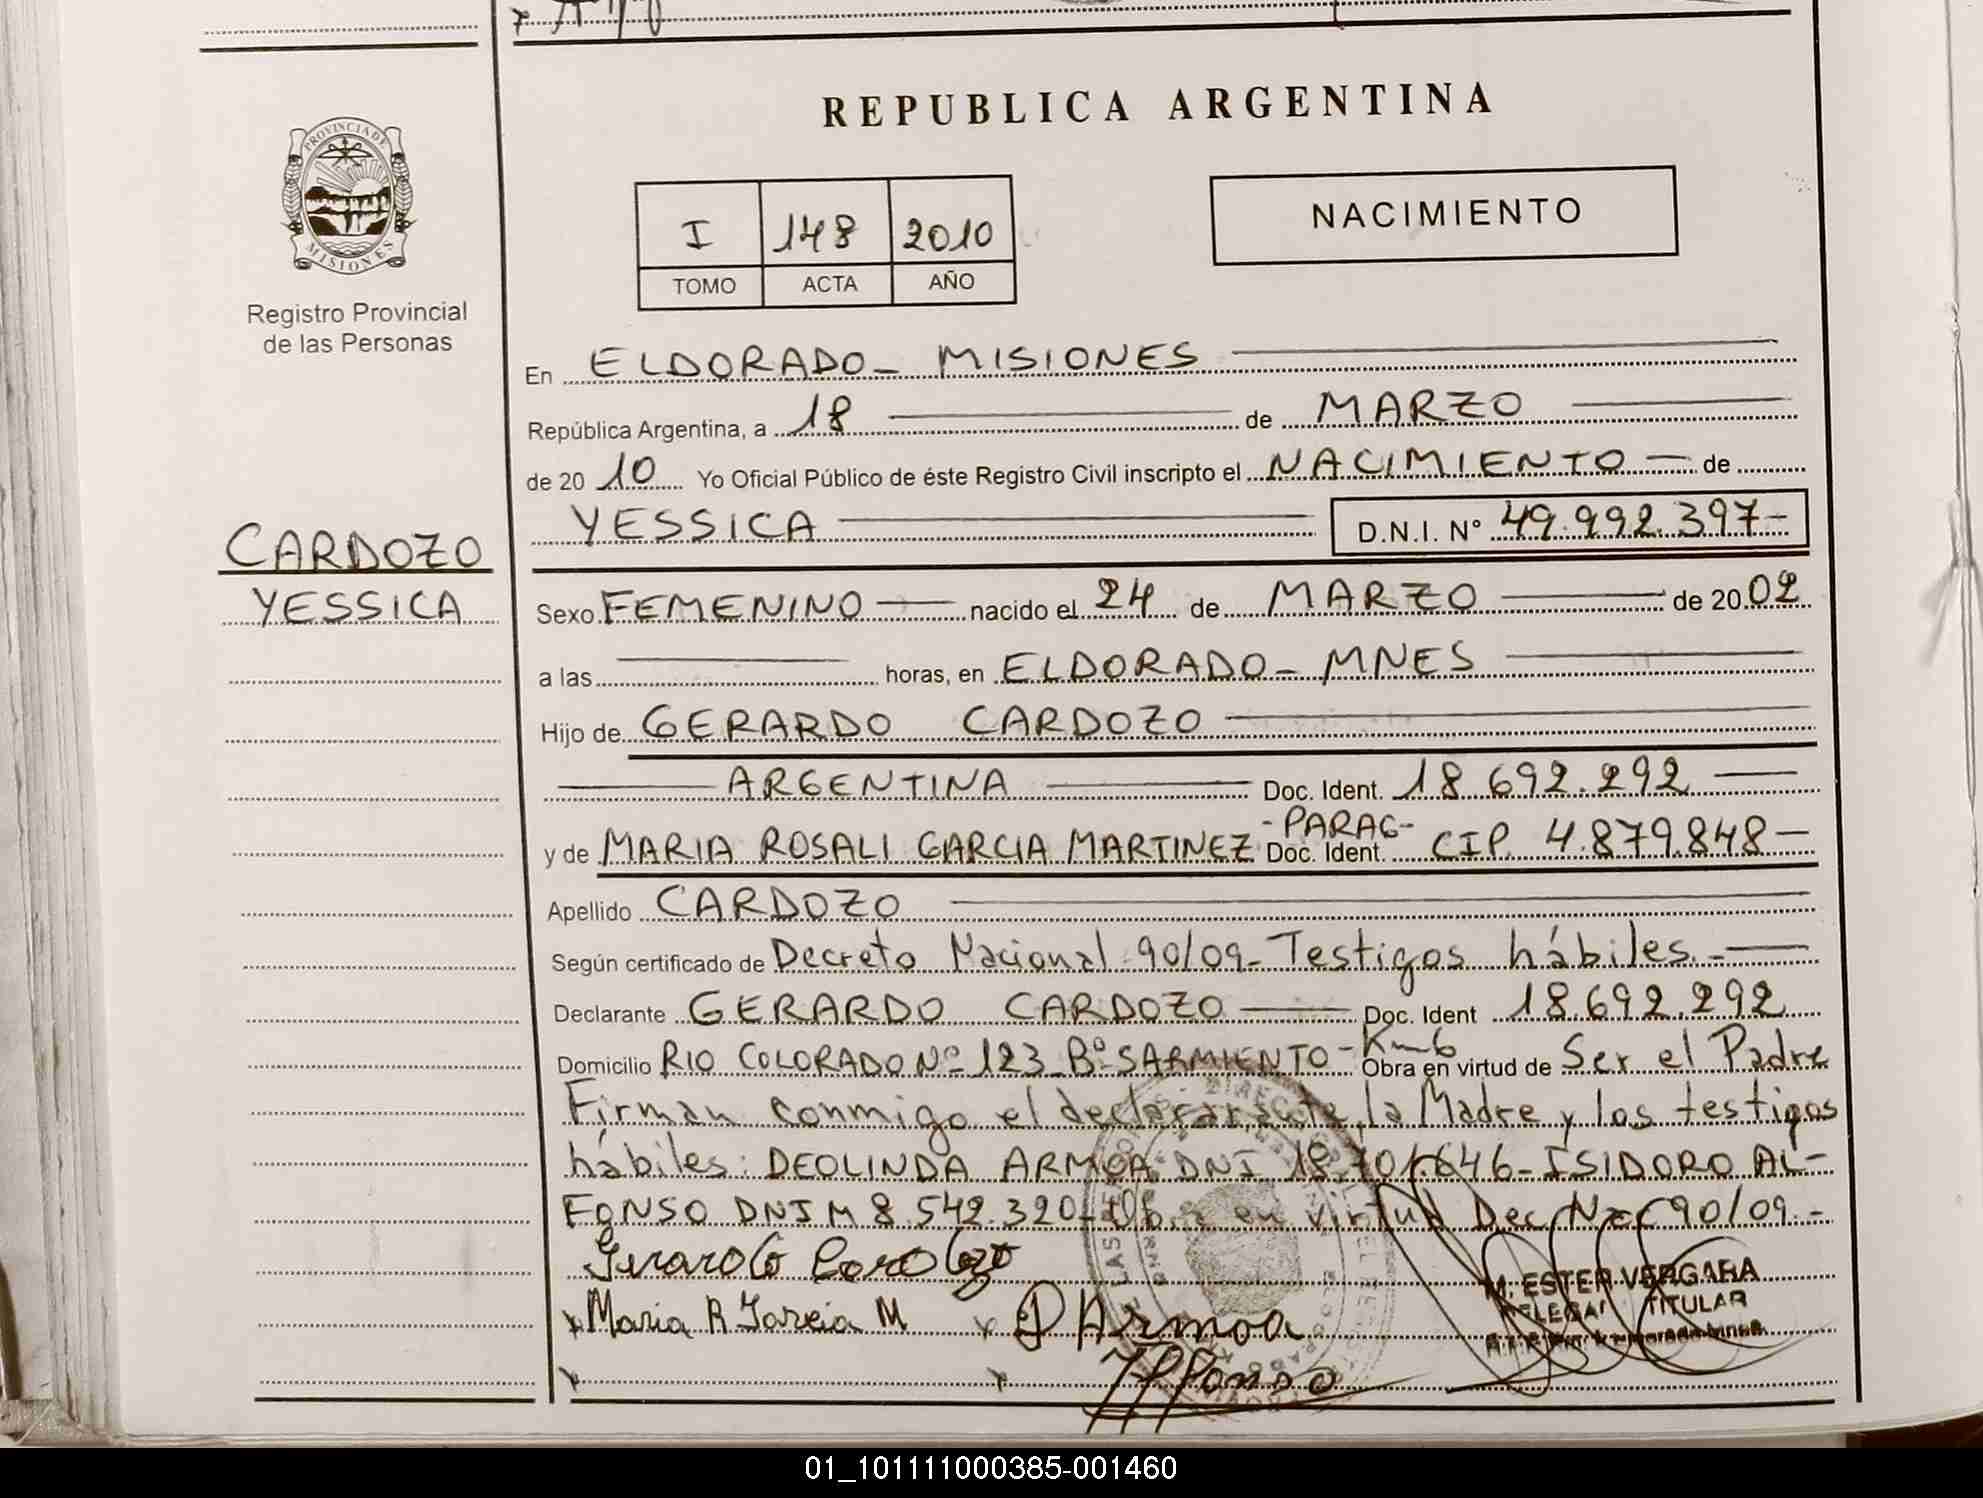 REPUBLICA ARGENTINA
PROVINCIA DE
MISIONES
Registro Provincial
de las Personas
I 148 2010
TOMO ACTA AÑO
NACIMIENTO
En ELDORADO_ MISIONES
República Argentina, a 18 de MARZO
de 20 10 Yo Oficial Público de éste Registro Civil inscripto el NACIMIENTO - de
YESSICA D.N.I. Nº 49.992.397-
CARDOZO
YESSICA
Sexo FEMENINO nacido el 24 de MARZO de 20 02
a las horas, en ELDORADO_ MNES
Hijo de GERARDO CARDOZO
ARGENTINA Doc. Ident. 18.692.292
-PARAG-
y de MARIA ROSALI GARCIA MARTINEZ Doc. Ident. CIP. 4.879.848-
Apellido CARDOZO
Según certificado de Decreto Nacional 90/09- Testigos hábiles.-
Declarante GERARDO CARDOZO Doc. Ident 18.692.292
Domicilio RIO COLORADO Nº 123_Bº SARMIENTO-Km6 Obra en virtud de Ser el Padre
Firman conmigo el declararante, la Madre y los testigos
hábiles: DEOLINDA ARMOA DNI 18.701.646-ISIDORO AL-
FONSO DNI M 8.542.320- Obra en virtud Dec Nac 90/09.-
Gerardo Cardozo
Maria R Garcia M D Armoa
M. ESTER VERGARA
DELEGADA TITULAR
IAlfonso
01_101111000385-001460